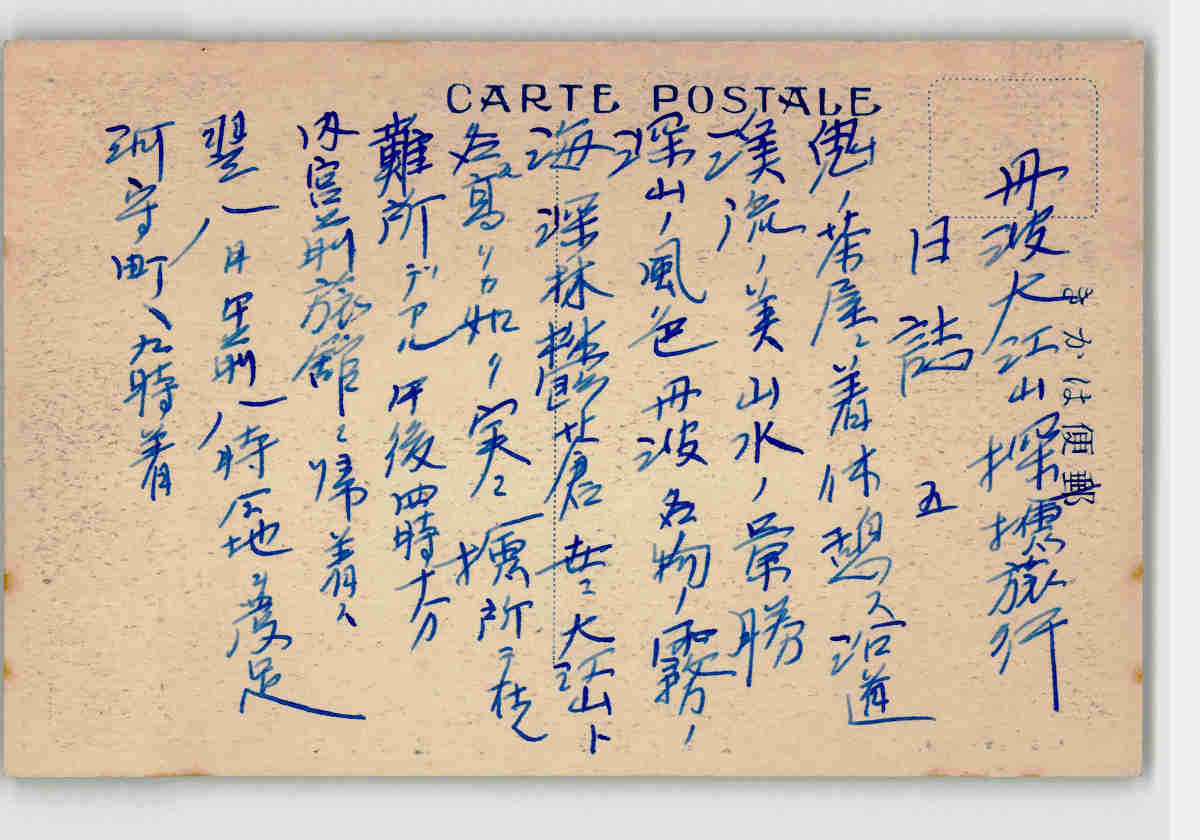 CARTE POSTALE
きかは便郵
丹波大江山探検旅行
日誌 五
鬼ノ茶屋ニ着休憩ス沿道
渓流ノ美山水ノ景勝
深山ノ風色丹波名物ノ霧ノ
海深林欝蒼世ニ大江山ト
名高リカ如ク実ニ一険所
難所デアル 午後四時十分
内宮前旅館ニ帰着ス
翌八日午前八時同地ヲ発足
河守町ヘ九時着